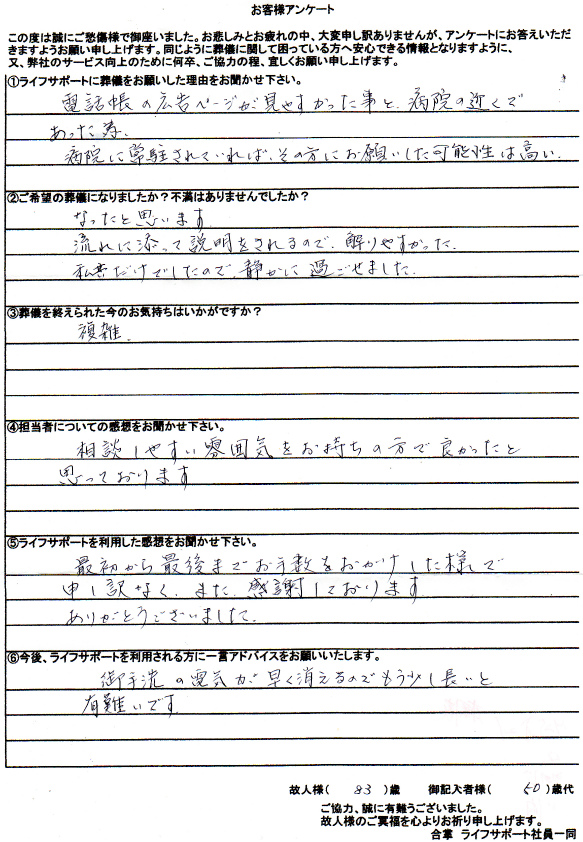 お客様アンケート
この度は誠にご愁傷様で御座いました。お悲しみとお疲れの中、大変申し訳ありませんが、アンケートにお答えいただ
きますようお願い申し上げます。同じように葬儀に関して困っている方へ安心できる情報となりますように、
又、弊社のサービス向上のために何卒、ご協力の程、宜しくお願い申し上げます。
①ライフサポートに葬儀をお願いした理由をお聞かせ下さい。
電話帳の広告ページが見やすかった事と、病院の近くで
あった為、
病院に常駐されていれば、その方にお願いした可能性は高い。
②ご希望の葬儀になりましたか？不満はありませんでしたか？
なったと思います
流れに添って説明をされるので、解りやすかった。
私共だけでしたので、静かに過ごせました。
③葬儀を終えられた今のお気持ちはいかがですか？
複雑。
④担当者についての感想をお聞かせ下さい。
相談しやすい雰囲気をお持ちの方で良かったと
思っております
⑤ライフサポートを利用した感想をお聞かせ下さい。
最初から最後までお手数をおかけした様で
申し訳なく、また、感謝しております
ありがとうございました。
⑥今後、ライフサポートを利用される方に一言アドバイスをお願いいたします。
御手洗の電気が早く消えるのでもう少し長いと
有難いです
故人様（ 83 ）歳 御記入者様（ 50 ）歳代
ご協力、誠に有難うございました。
故人様のご冥福を心よりお祈り申し上げます。
合掌 ライフサポート社員一同